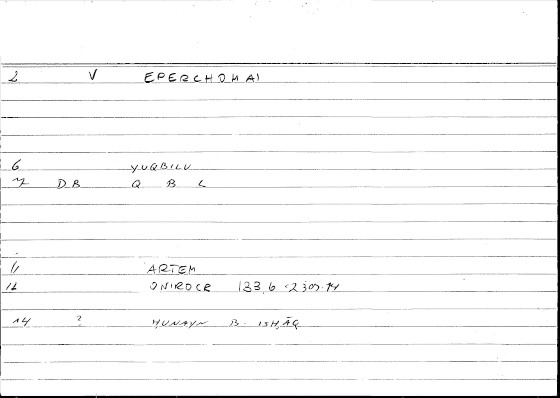 2 V EPERCHOMAI
6 YUQBILU
7 DB Q B L
11 ARTEM
12 ONIROCR 133,6
14 ? HUNAYN B. ISḤĀQ